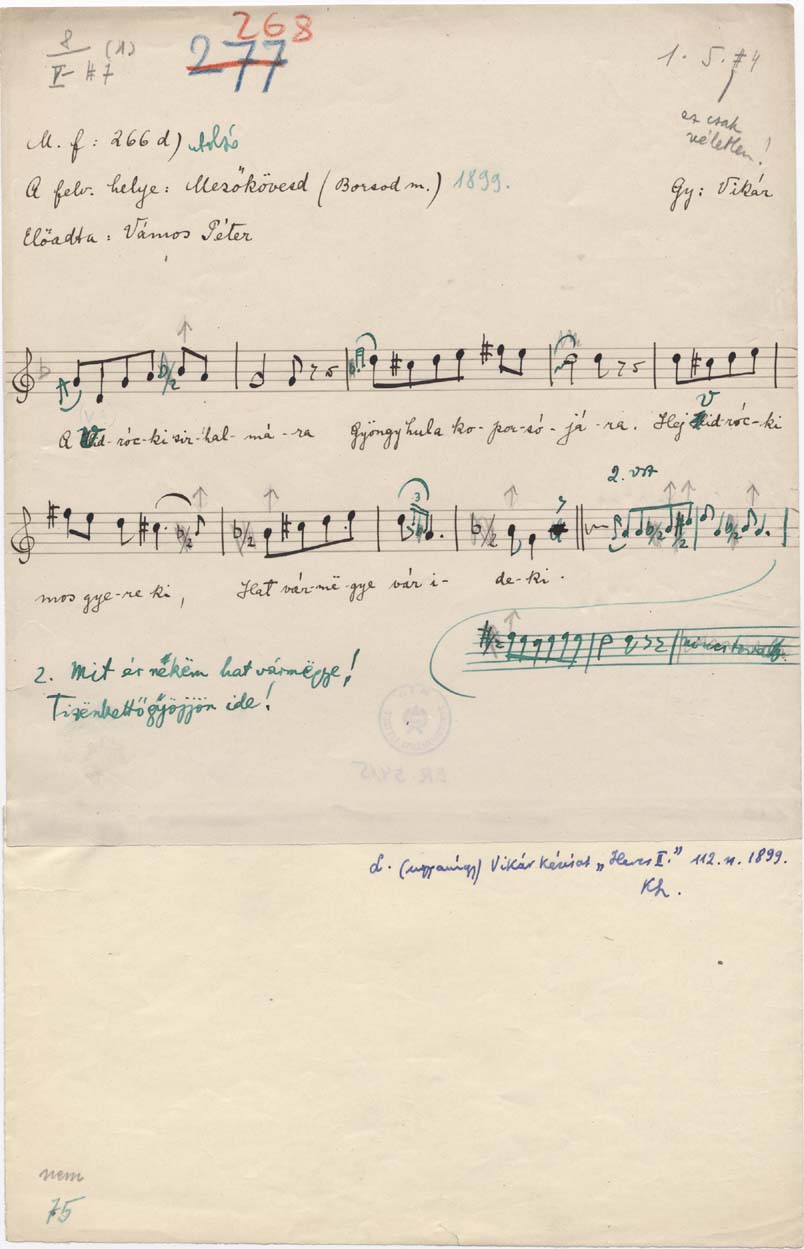 8 (1)
V- #7
268
277
1. 5. #4
ez csak
véletlen!
M. f: 266 d) utolsó
A felv. helye: Mezőkövesd (Borsod m.) 1899.
Gy: Vikár
Előadta: Vámos Péter
A Vid-róc-ki sir-hal-má-ra Gyöngy hula ko-por-só-já-ra. Hej Vid-róc-ki
2. vsz
mos gye-re ki, Hat vár-më-gye vár i-de-ki.
2. Mit ér nékëm hat vármëgye!
Tizënkettő gyöjjön ide!
L. (ugyanígy) Vikár kézirat „Heves II." 112. n. 1899.
Kh.
nem
75